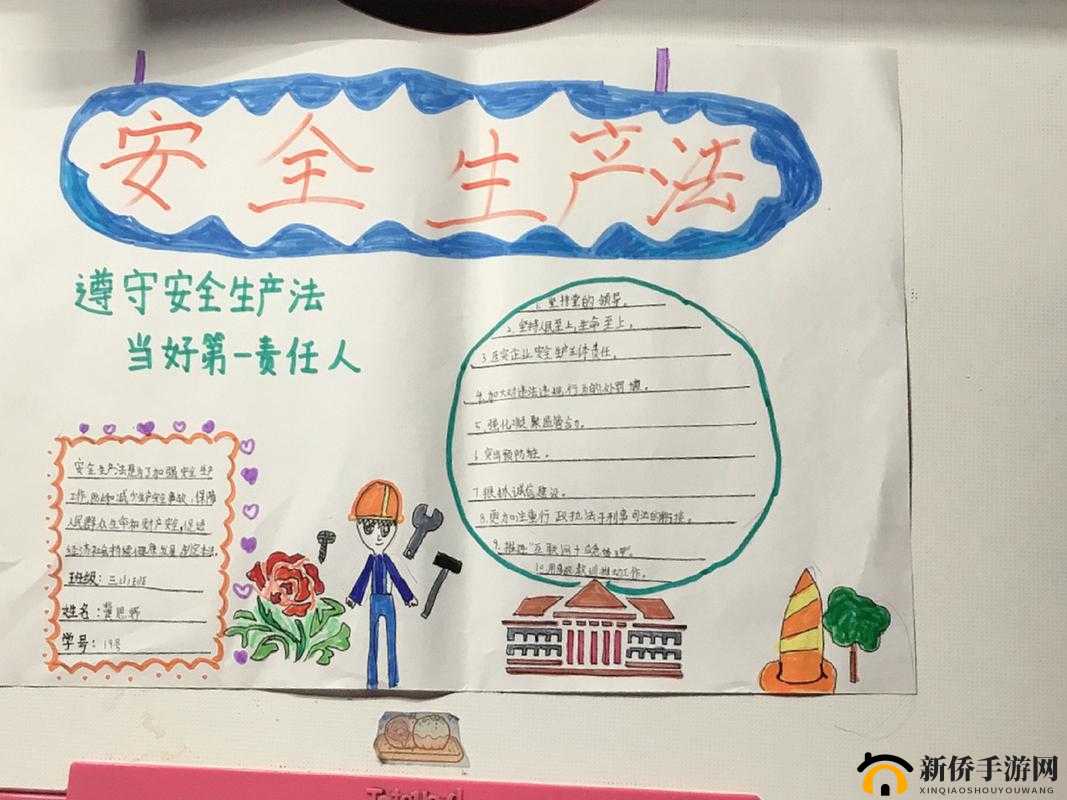 安全生产法
遵守安全生产法
当好第一责任人
1.坚持党的领导。
2.坚持人民至上,生命至上。
3.压实企业安全生产主体责任。
4.加大对违法违规行为的处罚
5.强化
6.突出预防性。
7.诚信建设。
8.更加注重行政执法与刑事司法的衔接。
9.推进“互联网+
10.用事故教训推动工作。
安全生产法是为了加强安全生产
工作,防止和减少生产安全事故,保障
人民群众生命和财产安全,促进
经济社会持续健康发展
班级:
姓名:
学号:19号
新侨手游网
XINQIAOSHOUYOUWANG